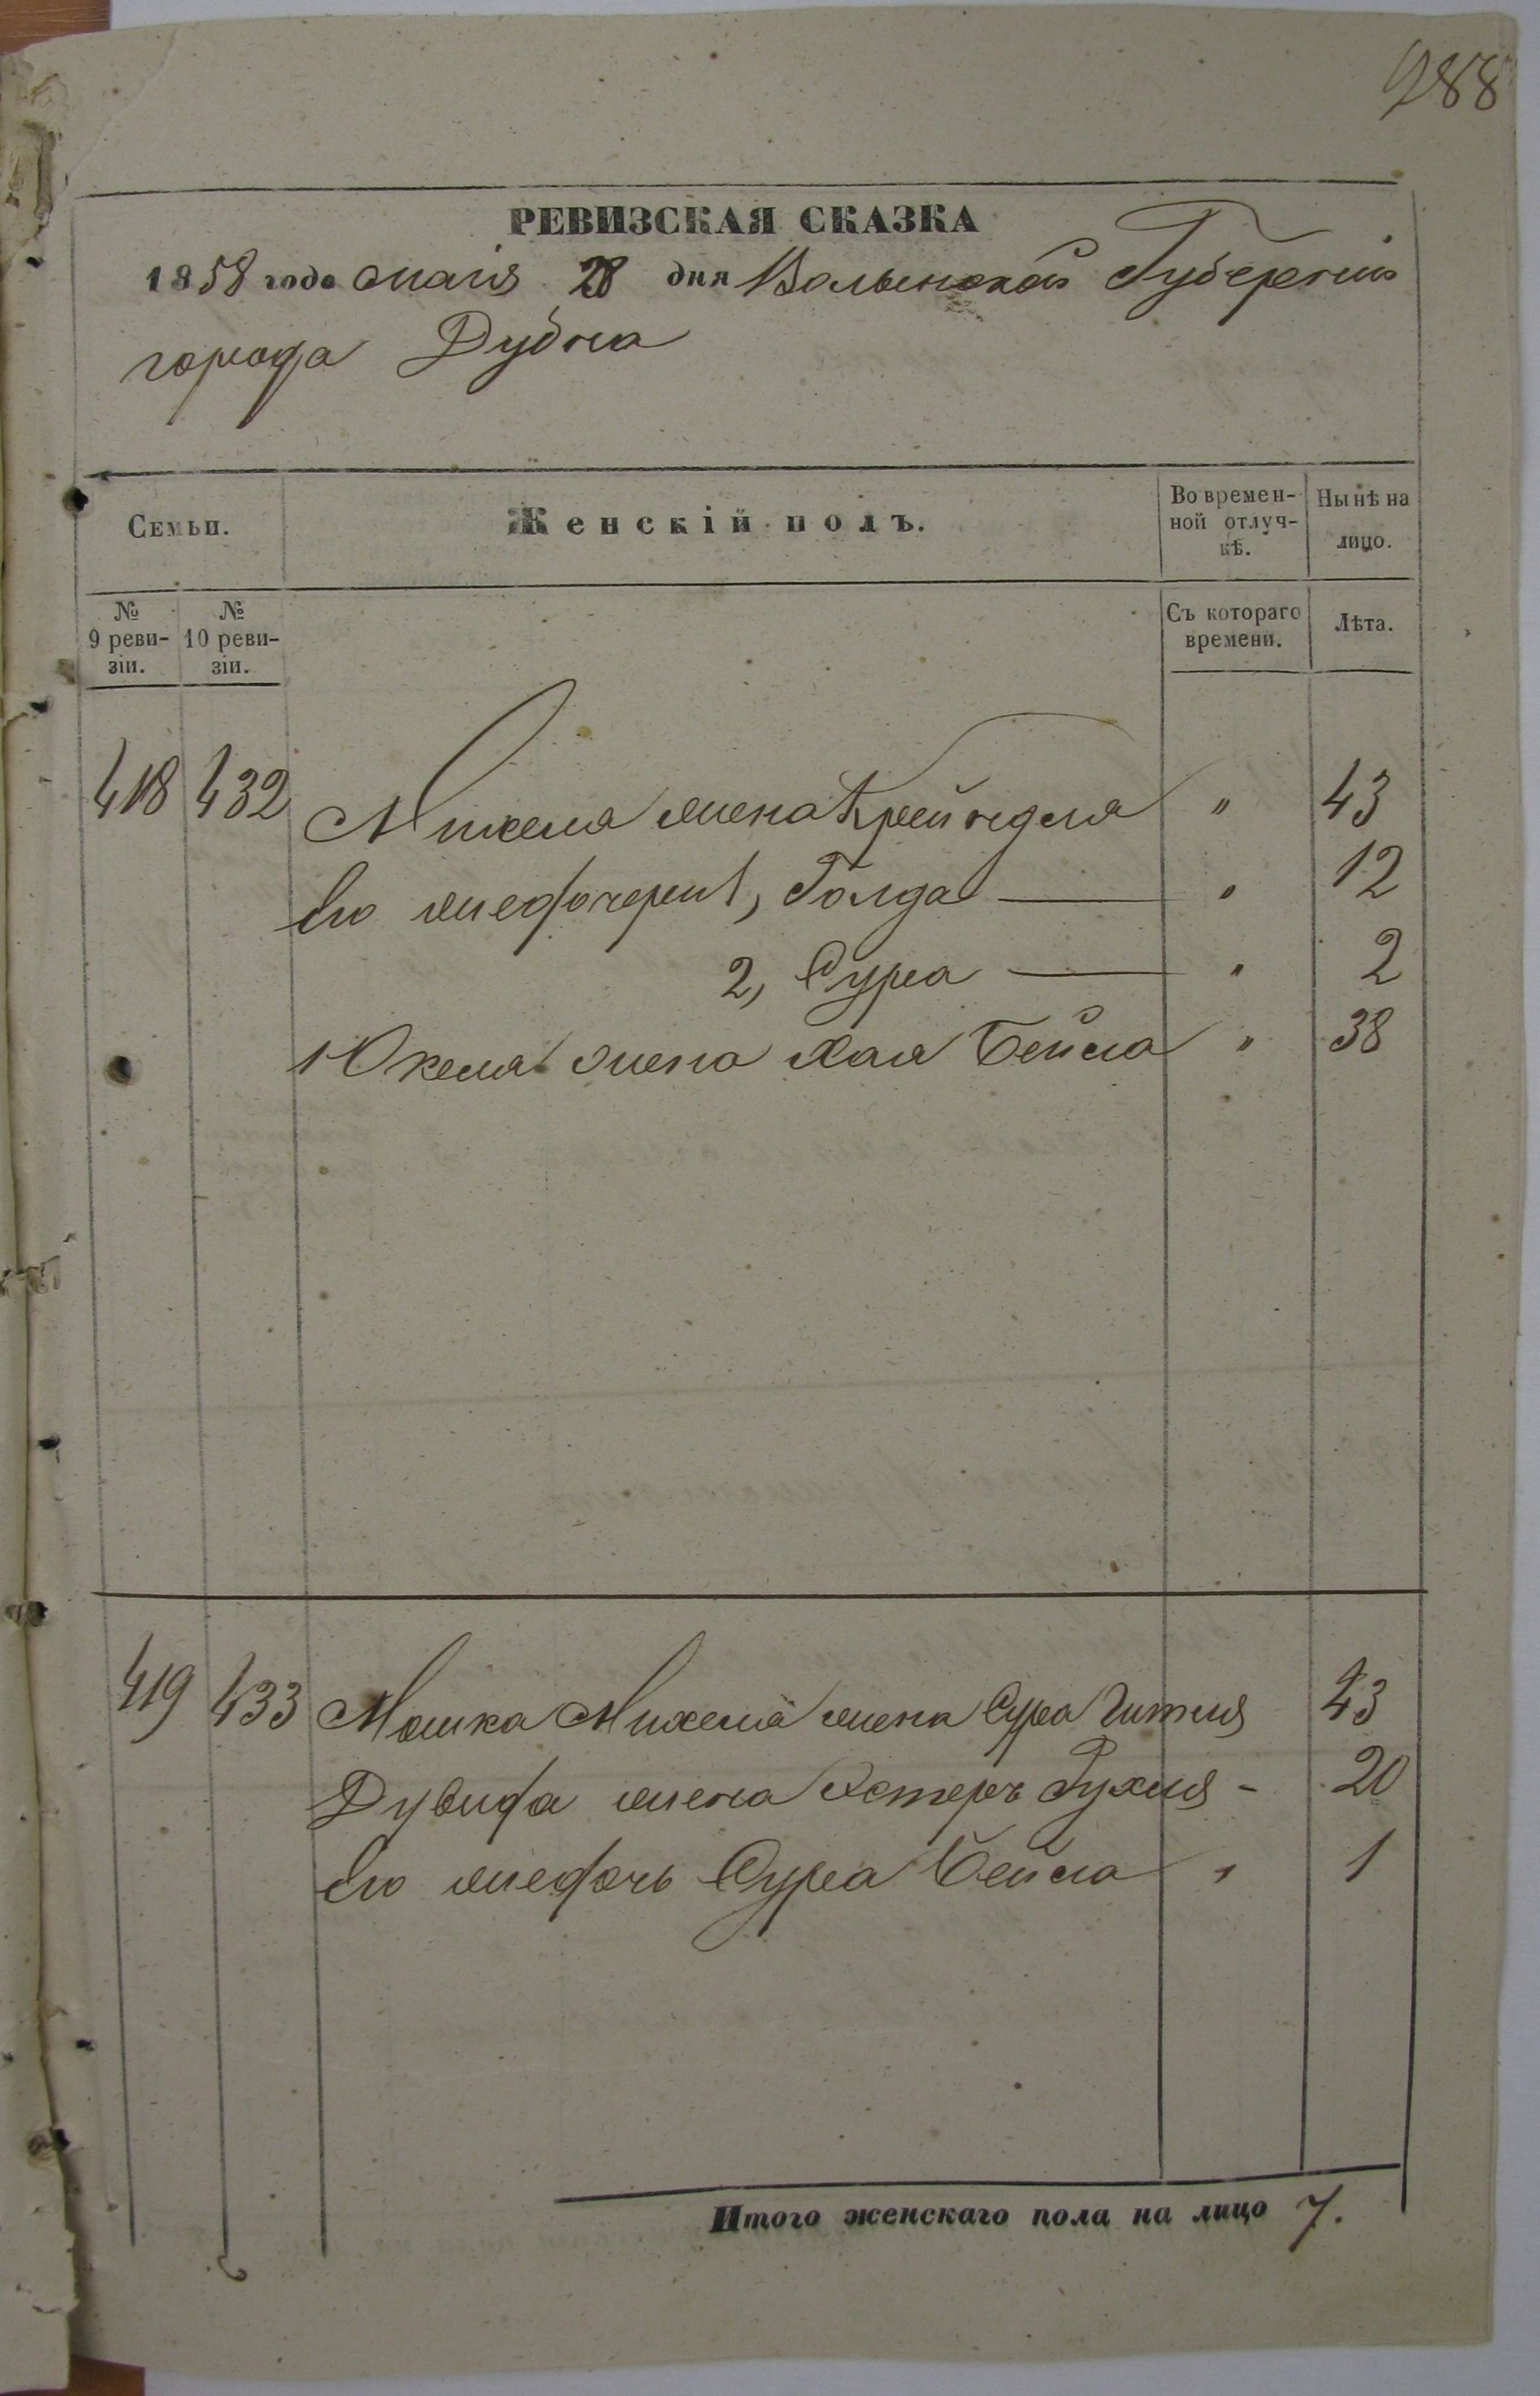 988
РЕВИЗСКАЯ СКАЗКА
1858 года маія 28 дня Волынской Губерніи
города Дубна
Семьи.
Женскій полъ.
Во времен-
ной отлуч-
кѣ.
Нынѣ на
лицо.
№
9 реви-
зіи.
№
10 реви-
зіи.
Съ котораго
времени.
Лѣта.
418 432 жена Крейндля " 43
Его Голда — " 12
2, Сура — " 2
Юкеля жена Хая Бейла " 38
419 433 Мошка Михеля жена Сура Гитля 43
Дувида жена Эстеръ Рухля - 20
Его Сура Бейла " 1
Итого женскаго пола на лицо 7.